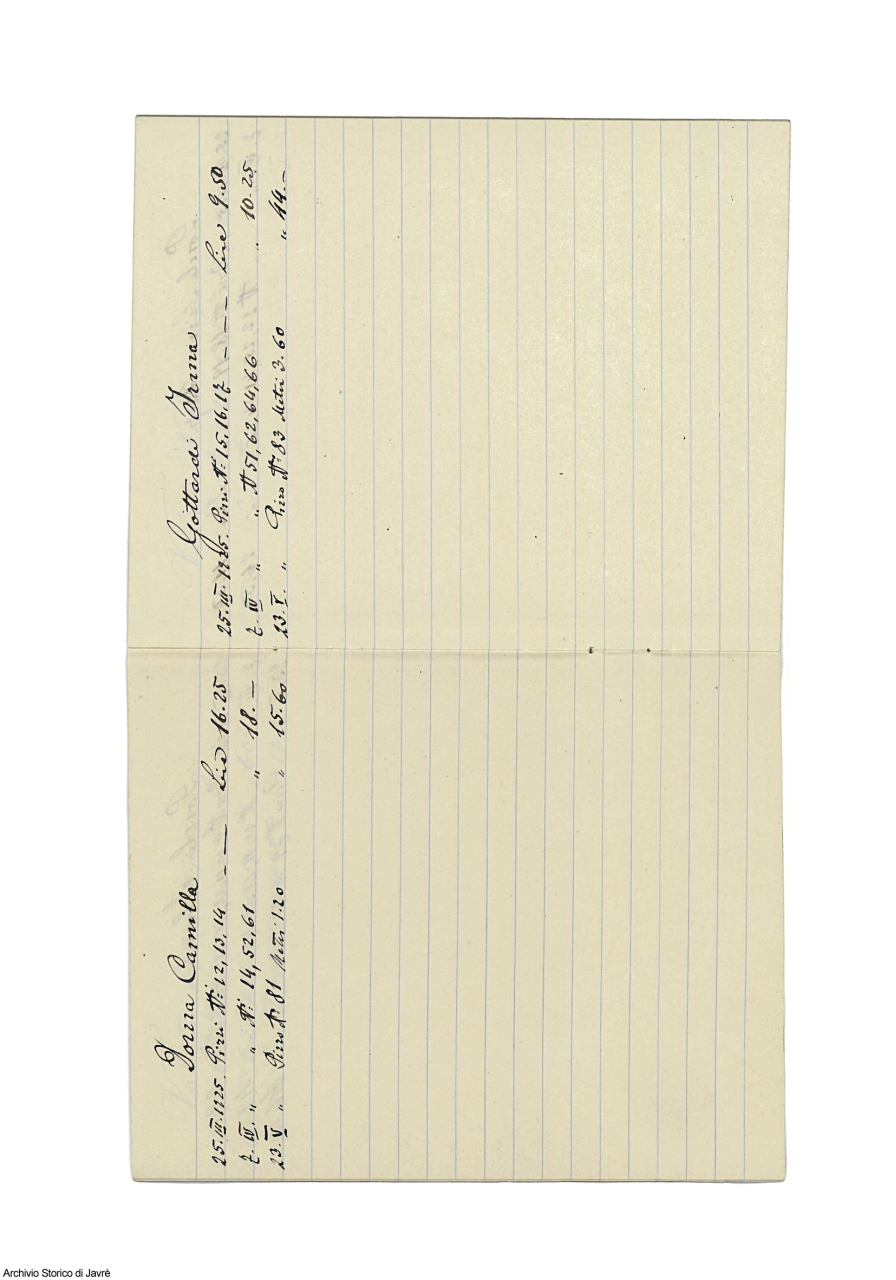 Camilla
25.III.1925. Pizzi N.i 12, 13, 14 - — Lire 16.25
7. IV. " " N.i 14, 52, 61 " 18.—
23. V " Pizzo N.° 81 Metri 1.20 " 15.60
Gottardi Irma
25.III.1925. Pizzi N.i 15, 16, 17 - - — Lire 9.50
7. IV " " N 51, 62, 64, 66 " 10.25
23. V. " Pizzo N.° 83 Metri 3.60 " 44.—
Archivio Storico di Javrè